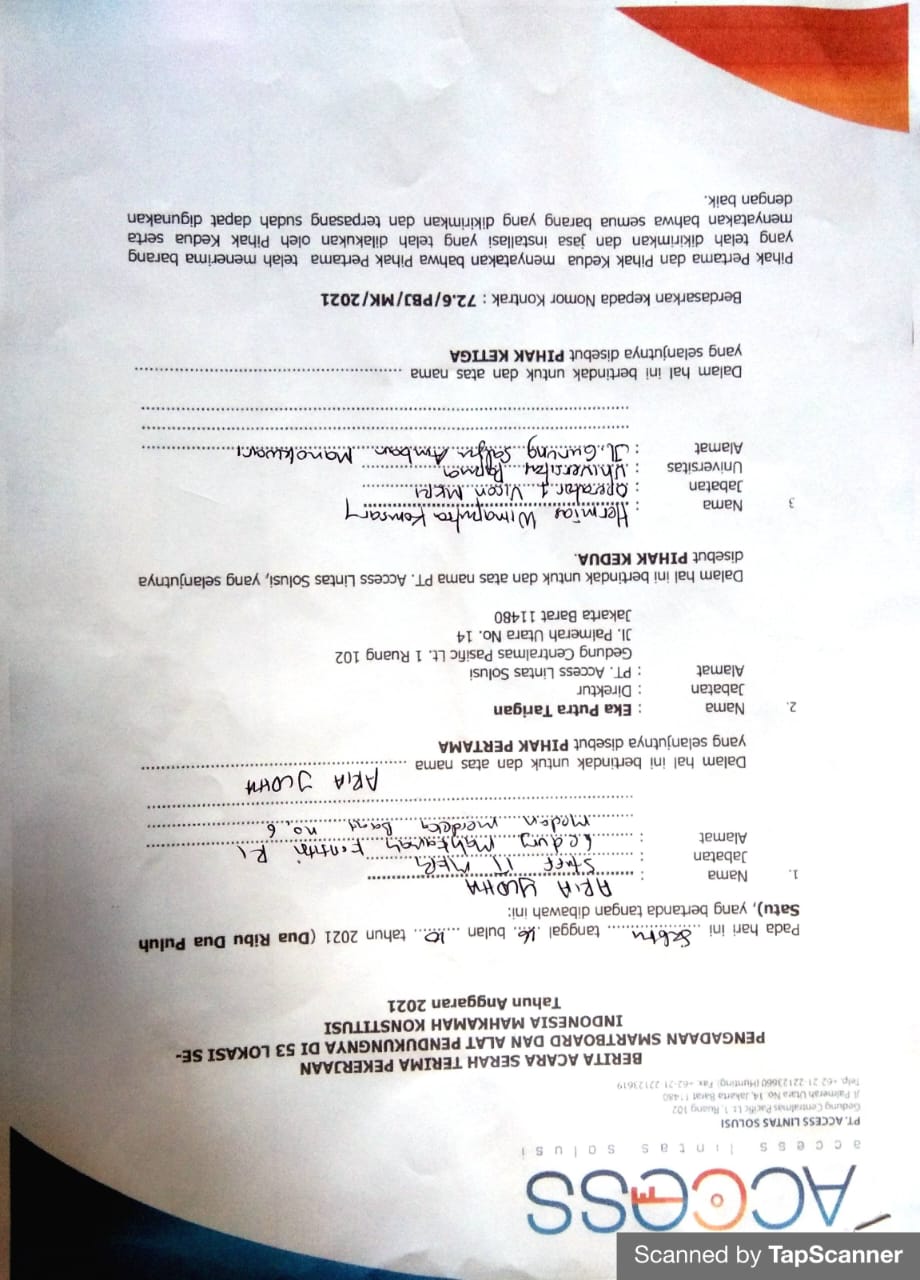 Scanned by TapScanner
ACCESS
access lintas solusi
PT. ACCESS LINTAS SOLUSI
Gedung Centralmas Pacific Lt. 1, Ruang 102
Jl. Palmerah Utara No. 14, Jakarta Barat 11480
Telp. +62-21-22123660 (Hunting) Fax. +62-21-22123619
BERITA ACARA SERAH TERIMA PEKERJAAN
PENGADAAN SMARTBOARD DAN ALAT PENDUKUNGNYA DI 53 LOKASI SE-
INDONESIA MAHKAMAH KONSTITUSI
Tahun Anggaran 2021
Pada hari ini Sabtu tanggal 16 bulan 10 tahun 2021 (Dua Ribu Dua Puluh
Satu), yang bertanda tangan dibawah ini:
1. Nama : ARIA YUDHA
Jabatan : Staff IT MKRI
Alamat : Gedung Mahkamah RI
Medan Merdeka Barat no. 6
Dalam hal ini bertindak untuk dan atas nama ARIA YUDHA
yang selanjutnya disebut PIHAK PERTAMA
2. Nama : Eka Putra Tarigan
Jabatan : Direktur
Alamat : PT. Access Lintas Solusi
Gedung Centralmas Pasific Lt. 1 Ruang 102
Jl. Palmerah Utara No. 14
Jakarta Barat 11480
Dalam hal ini bertindak untuk dan atas nama PT. Access Lintas Solusi, yang selanjutnya
disebut PIHAK KEDUA.
3 Nama : Hermias Wimaputra Komsary
Jabatan : Operator 1 Vicon MKRI
Universitas : Universitas Papua
Alamat : Jl. Gunung Salju Amban Manokwari
Dalam hal ini bertindak untuk dan atas nama
yang selanjutnya disebut PIHAK KETIGA
Berdasarkan kepada Nomor Kontrak : 72.6/PBJ/MK/2021
Pihak Pertama dan Pihak Kedua menyatakan bahwa Pihak Pertama telah menerima barang
yang telah dikirimkan dan jasa installasi yang telah dilakukan oleh Pihak Kedua serta
menyatakan bahwa semua barang yang dikirimkan dan terpasang sudah dapat digunakan
dengan baik.